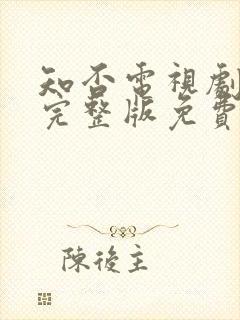 知否電視劇
完整版免費
陳後主